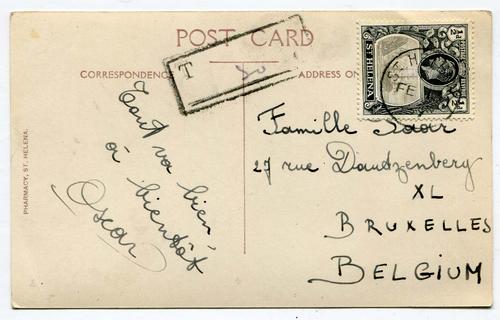 POST CARD
CORRESPONDENCE
ADDRESS ON
T
½d
POSTAGE & REVENUE
ST. HELENA
½d
ST. H
FE
PHARMACY, ST. HELENA.
Tout va bien,
à bientôt
Oscar
Famille Saar
27 rue Dautzenberg
XL
BRUXELLES
BELGIUM